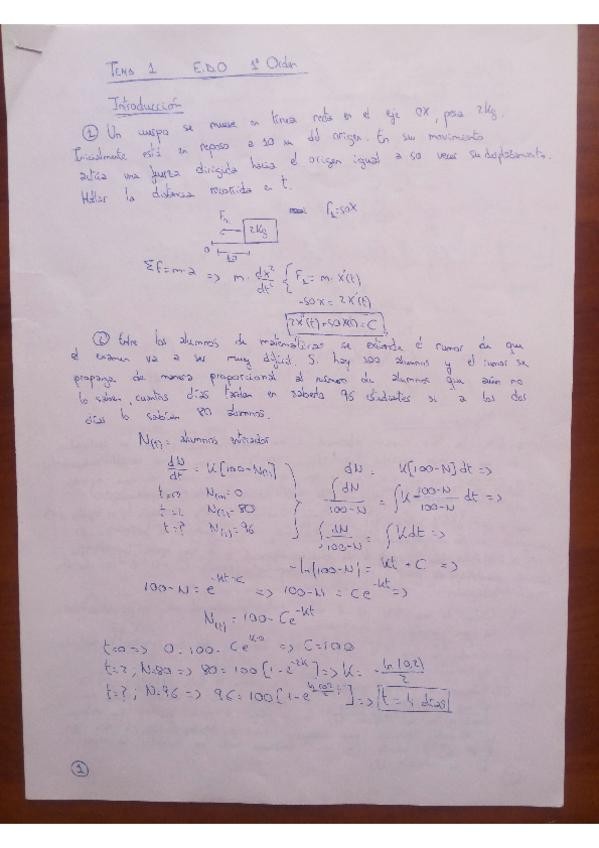 TEMA 1 E.D.O 1º Orden
Introducción
① Un cuerpo se mueve en línea recta en el eje OX, pesa 2Kg.
Inicialmente está en reposo a 10 m del origen. En su movimiento
actúa una fuerza dirigida hacia el origen igual a 50 veces su desplazamiento.
Hallar la distancia recorrida en t.
F₁ 2Kg F₁=50X
0 10
ΣF=m·a => m· dx²/dt² { F₁ = m·X''(t)
-50X = 2X''(t)
2X''(t)+50X(t)=C
② Entre los alumnos de matemáticas se extiende el rumor de que
el examen va a ser muy difícil. Si hay 100 alumnos y el rumor se
propaga de manera proporcional al número de alumnos que aún no
lo saben, cuantos días tardan en saberlo 96 estudiantes si a los dos
días lo sabían 80 alumnos.
N(t) = alumnos enterados
dN/dt = K[100-N(t)] dN = K[100-N]dt =>
t=0 N(0)=0 ∫ dN/100-N = ∫ K 100-N/100-N dt =>
t=2 N(2)=80
t=? N(t)=96 ∫ dN/100-N = ∫ Kdt =>
-ln(100-N) = Kt + C =>
100-N = e^-Kt-C => 100-N = Ce^-Kt =>
N(t) = 100-Ce^-Kt
t=0 => 0=100-Ce^K·0 => C=100
t=2; N=80 => 80=100[1-e^-2K] => K = -ln(0,2)/2
t=?; N=96 => 96=100[1-e^ln(0,2)/2 t] => t = 4 días
①